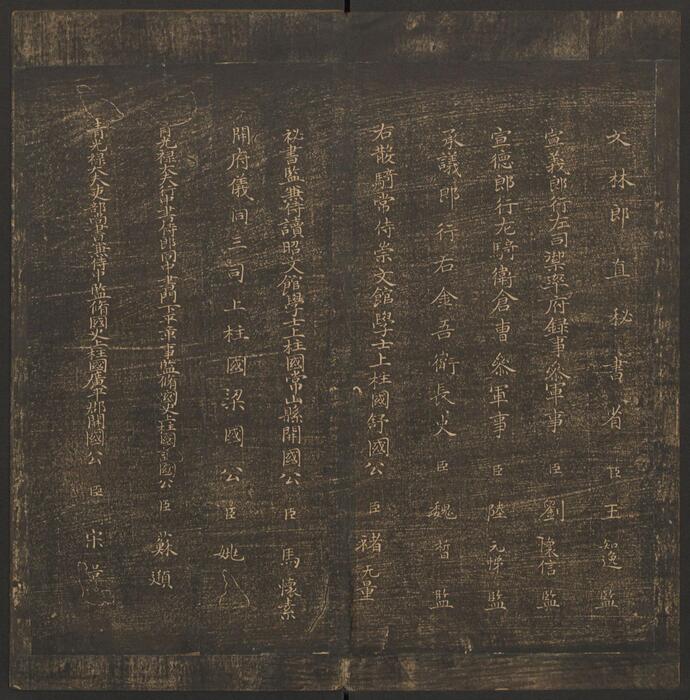 文林郎直秘書省臣王知逸監
宣義郎行左司禦率府録事叅軍事臣劉懷信監
宣德郎行左驍衛倉曹叅軍事臣陸元悌監
承議郎行右金吾衛長史臣魏哲監
右散騎常侍崇文館學士上柱國舒國公臣褚无量
祕書監兼侍讀昭文館學士上柱國常山縣開國公臣馬懷素
開府儀同三司上柱國梁國公臣姚
青光禄大夫中書侍郎同中書門下平章事監脩國史上柱國許國公臣蘇頲
青光禄大夫吏部尚書兼侍中監脩國史上柱國廣平郡開國公臣宋